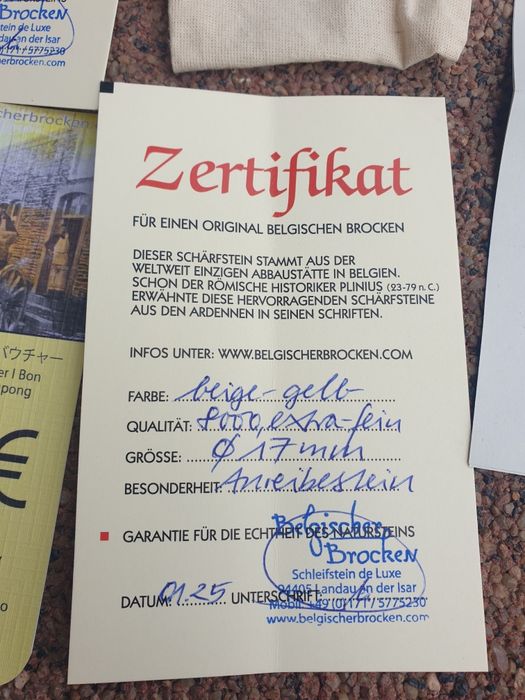 Brocken
stein de Luxe
dau an der Isar
171/5775230
cherbrocken.com
cherbrocken
バウチャー
er I Bon
pong
€
Zertifikat
FÜR EINEN ORIGINAL BELGISCHEN BROCKEN
DIESER SCHÄRFSTEIN STAMMT AUS DER
WELTWEIT EINZIGEN ABBAUSTÄTTE IN BELGIEN.
SCHON DER RÖMISCHE HISTORIKER PLINIUS (23-79 n. C.)
ERWÄHNTE DIESE HERVORRAGENDEN SCHÄRFSTEINE
AUS DEN ARDENNEN IN SEINEN SCHRIFTEN.
INFOS UNTER: WWW.BELGISCHERBROCKEN.COM
FARBE: beige-gelb
QUALITÄT: 8000, extra-fein
GRÖSSE: Ø 17 mm
BESONDERHEIT: Anreibestein
GARANTIE FÜR DIE ECHTHEIT DES NATURSTEINS
Belgischer
Brocken
Schleifstein de Luxe
94405 Landau an der Isar
DATUM: 01.25 UNTERSCHRIFT:
Mobil: +49 (0)171 / 5775230
www.belgischerbrocken.com